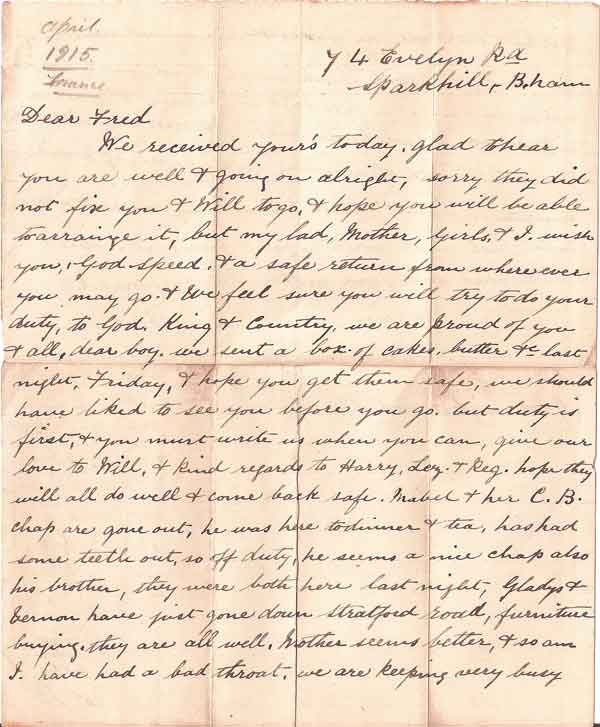 April.
1915.
France
74 Evelyn Rd
Sparkhill, B.ham
Dear Fred
We received your's today. glad to hear
you are well & going on alright, sorry they did
not fix you & Will to go, & hope you will be able
to arrange it, but my lad, Mother, Girls, & I. wish
you, God speed. & a safe return from where ever
you may go. & We feel sure you will try to do your
duty, to God. King & Country, we are proud of you
& all, dear boy. we sent a box of cakes, butter &c last
night, Friday, & hope you get them safe, we should
have liked to see you before you go. but duty is
first, & you must write us when you can, give our
love to Will, & kind regards to Harry, Les. & Reg. hope they
will all do well & come back safe. Mabel & her C. B.
chap are gone out, he was here to dinner & tea, has had
some teeth out, so off duty, he seems a nice chap also
his brother, they were both here last night, Gladys &
Vernon have just gone down Stratford road, furniture
buying. they are all well. Mother seems better, & so am
I. have had a bad throat. we are keeping very busy